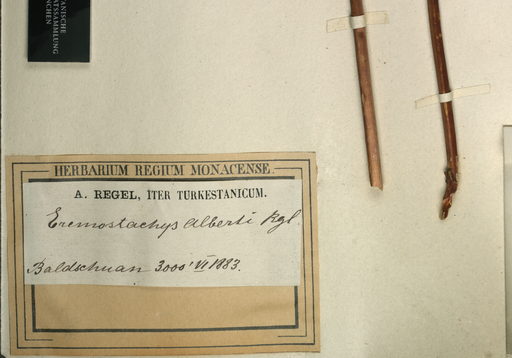 TANISCHE
ATSSAMMLUNG
NCHEN
HERBARIUM REGIUM MONACENSE.
A. REGEL, ITER TURKESTANICUM.
Eremostachys Alberti Rgl.
Baldschuan 3000' VI 1883.